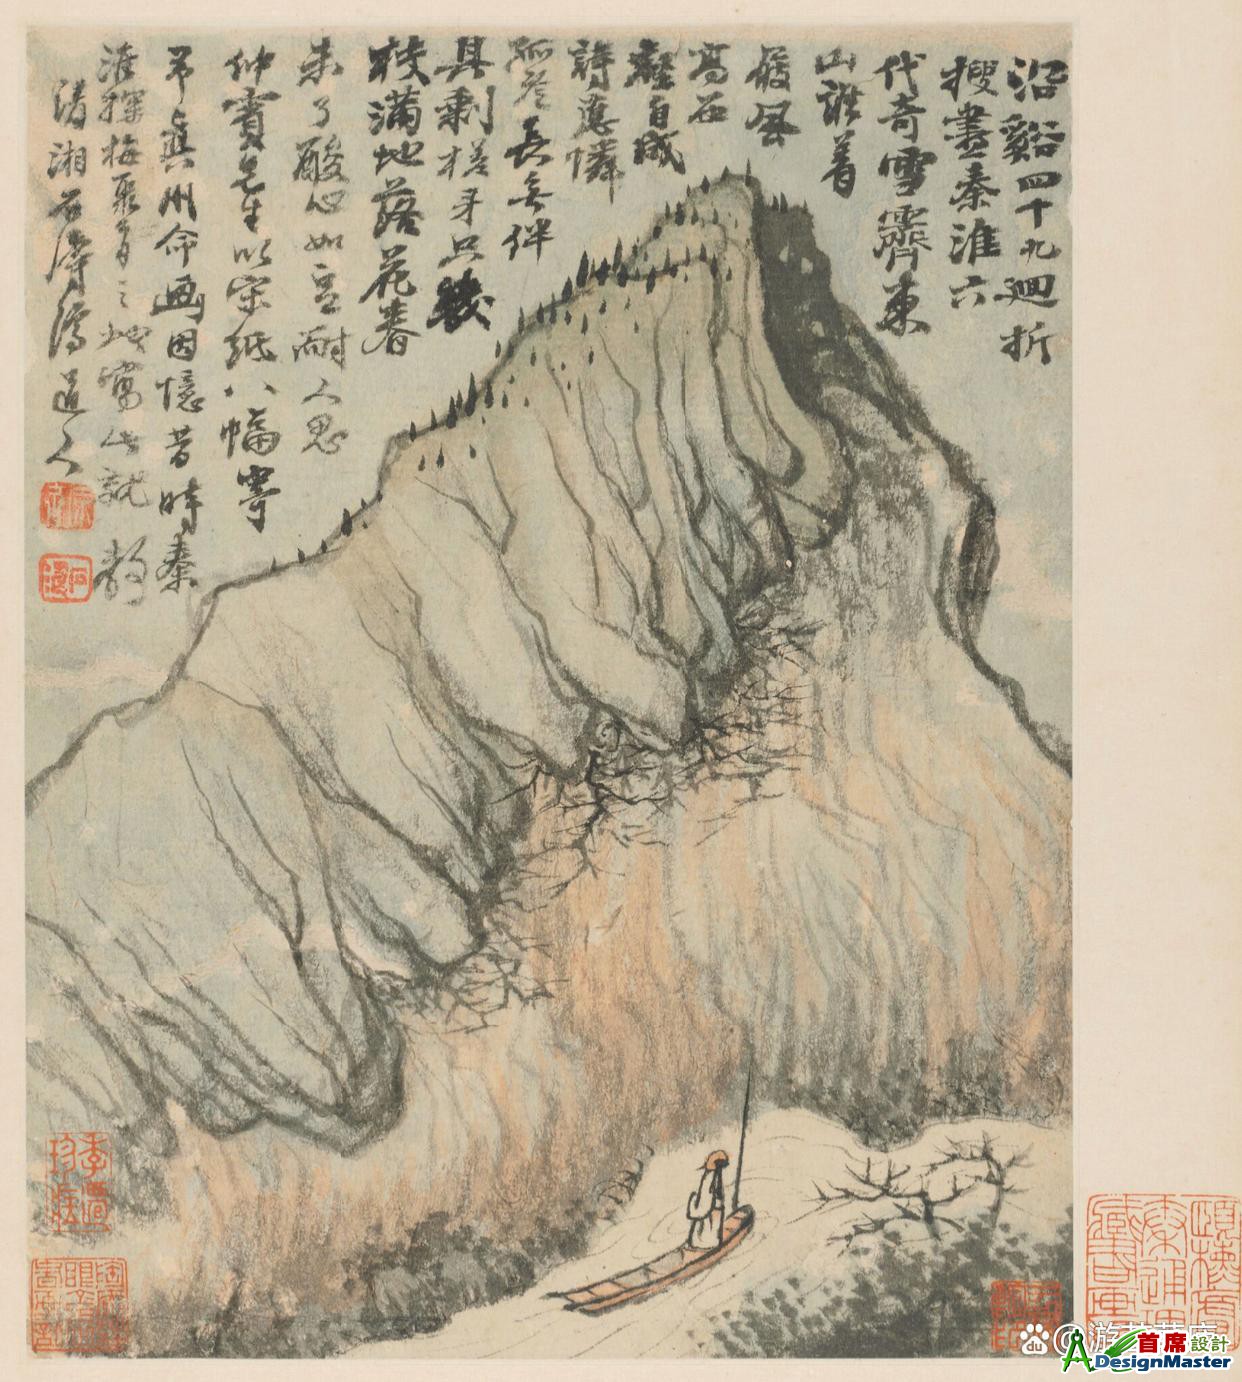 沿谿四十九迴折
搜盡秦淮六
代奇雪霽東
山誰着
屐風
高石
壑自成
詩應憐
孤老長無伴
具剩槎牙只幾
枝滿地落花春
未了酸心如豆耐人思
仲賓先生以宋紙八幅寄
予真州命畫因憶昔時秦
淮探梅聚首之地寫此就教
清湘石濤濟道人
首席設計
DesignMaster